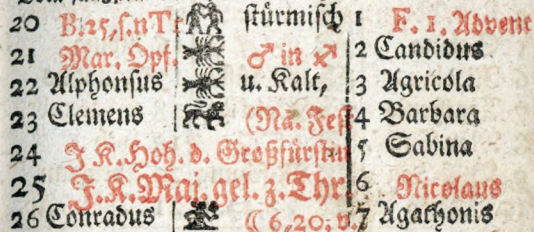 20 B. 25, s. n T: stürmisch 1 F. 1. Advent
21 Mar. Opf. ♂ in ♐ 2 Candidus
22 Alphonsus u. Kalt, 3 Agricola
23 Clemens (Na. Fest 4 Barbara
24 J K. Hoh. d. Großfürstin 5 Sabina
25 J. K. Maj. gel. z. Thr. 6 Nicolaus
26 Conradus ☾ 6, 20. v. 7 Agathonis